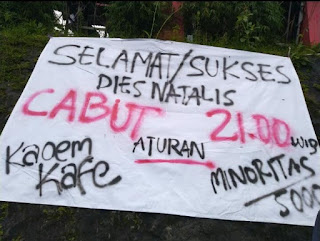 SELAMAT/SUKSES
DIES NATALIS
CABUT 21.00 WIB
ATURAN
Kaoem Kafe
MINORITAS
5000